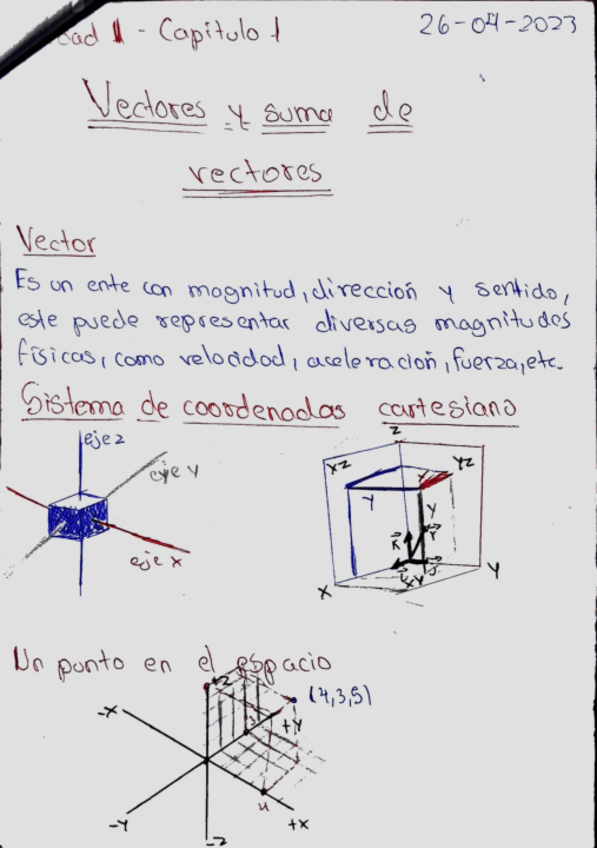 dad 1 - Capitulo 1
26-04-2023
Vectores y suma de
vectores
Vector
Es un ente con magnitud, dirección y sentido,
este puede representar diversas magnitudes
físicas, como velocidad, aceleración, fuerza, etc.
Sistema de coordenadas cartesiano
eje z
eje y
eje x
Z
XZ
YZ
Y
Y
K
r
J
XY
X
Y
Un punto en el espacio
+Z
(4,3,5)
-X
+Y
3
4
-Y
-Z
+X